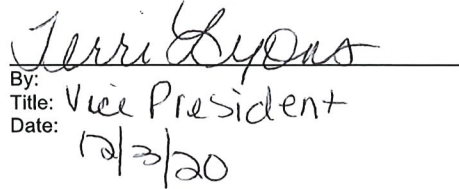 Terri Lyons
By:
Title: Vice President
Date: 12/3/20